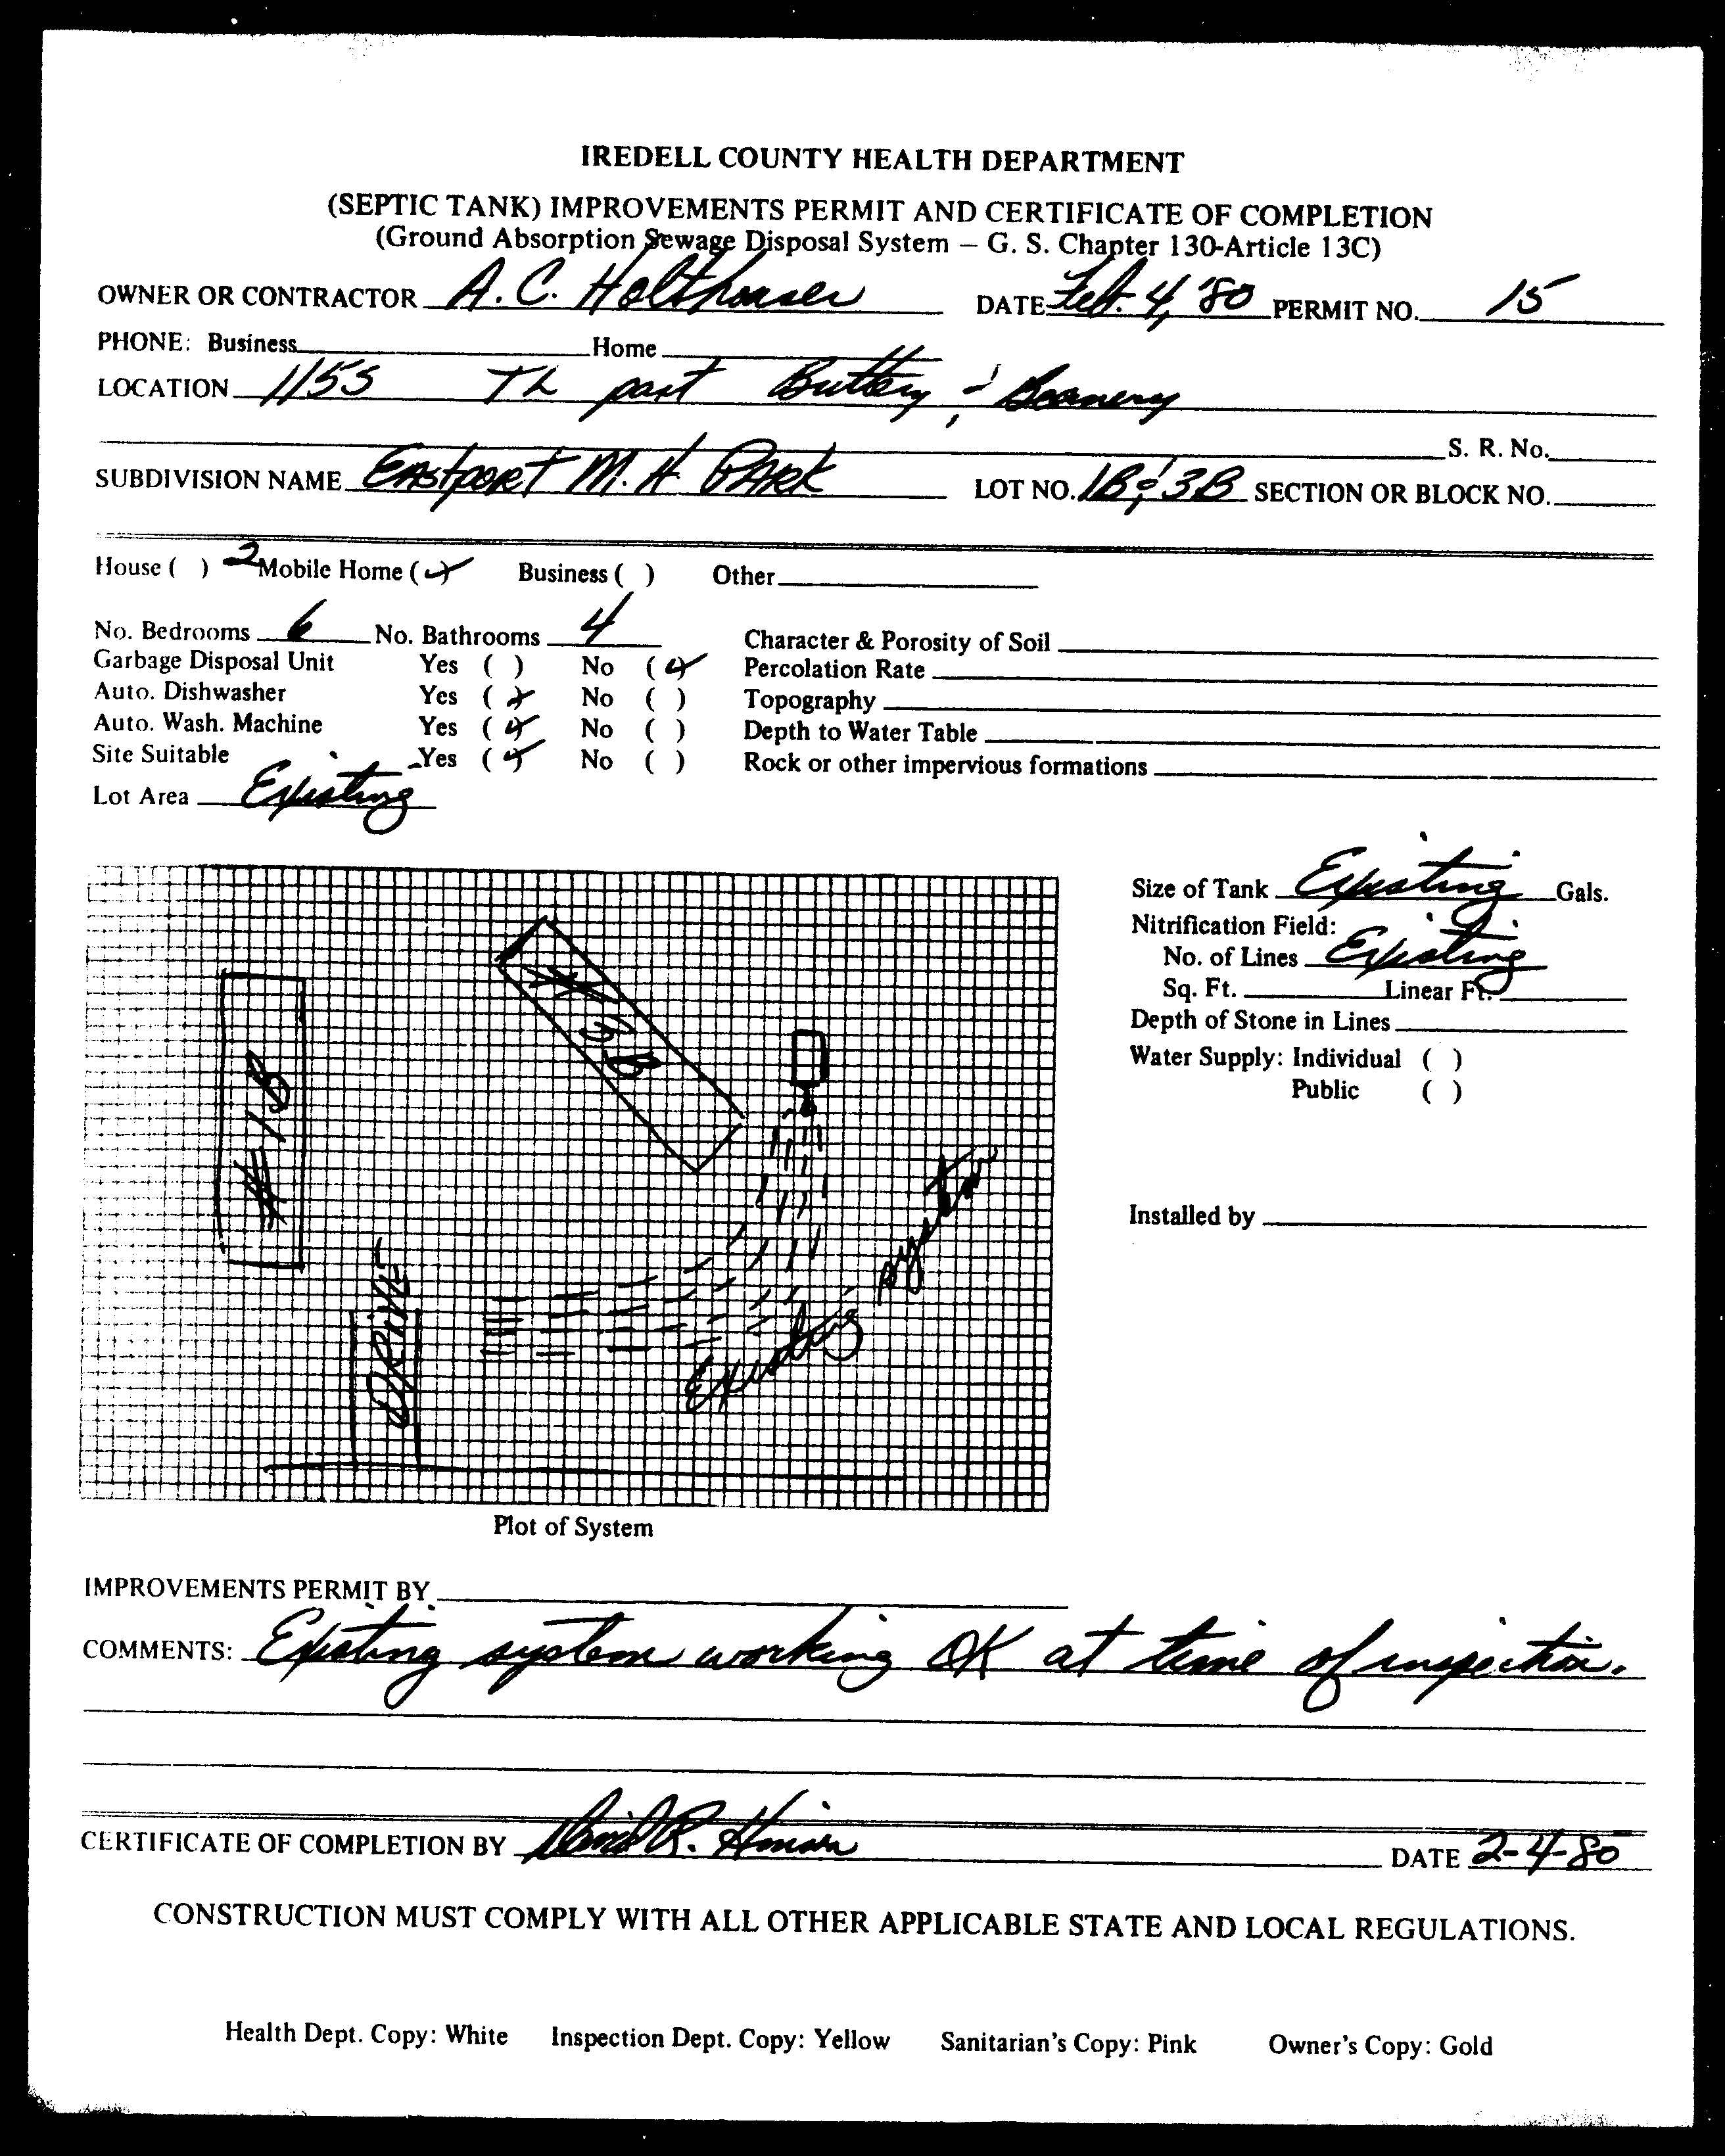 IREDELL COUNTY HEALTH DEPARTMENT
(SEPTIC TANK) IMPROVEMENTS PERMIT AND CERTIFICATE OF COMPLETION
(Ground Absorption Sewage Disposal System – G. S. Chapter 130-Article 13C)
OWNER OR CONTRACTOR A. C. Holthouser DATE Feb. 4, '80 PERMIT NO. 15
PHONE: Business Home
LOCATION 1155 TL past Buttery & Beanery
S. R. No.
SUBDIVISION NAME Eastport M. H. PARK LOT NO. 1B & 3B SECTION OR BLOCK NO.
House ( ) 2 Mobile Home (✓) Business ( ) Other
No. Bedrooms 6 No. Bathrooms 4 Character & Porosity of Soil
Garbage Disposal Unit Yes ( ) No (✓) Percolation Rate
Auto. Dishwasher Yes (✓) No ( ) Topography
Auto. Wash. Machine Yes (✓) No ( ) Depth to Water Table
Site Suitable Yes (✓) No ( ) Rock or other impervious formations
Lot Area Existing
Size of Tank Existing Gals.
Nitrification Field:
No. of Lines Existing
Sq. Ft. Linear Ft.
Depth of Stone in Lines
Water Supply: Individual ( )
Public ( )
Installed by
# 1B
# 3B
DRIVE
Existing system
Plot of System
IMPROVEMENTS PERMIT BY
COMMENTS: Existing system working OK at time of inspection.
CERTIFICATE OF COMPLETION BY David R. DATE 2-4-80
CONSTRUCTION MUST COMPLY WITH ALL OTHER APPLICABLE STATE AND LOCAL REGULATIONS.
Health Dept. Copy: White Inspection Dept. Copy: Yellow Sanitarian's Copy: Pink Owner's Copy: Gold